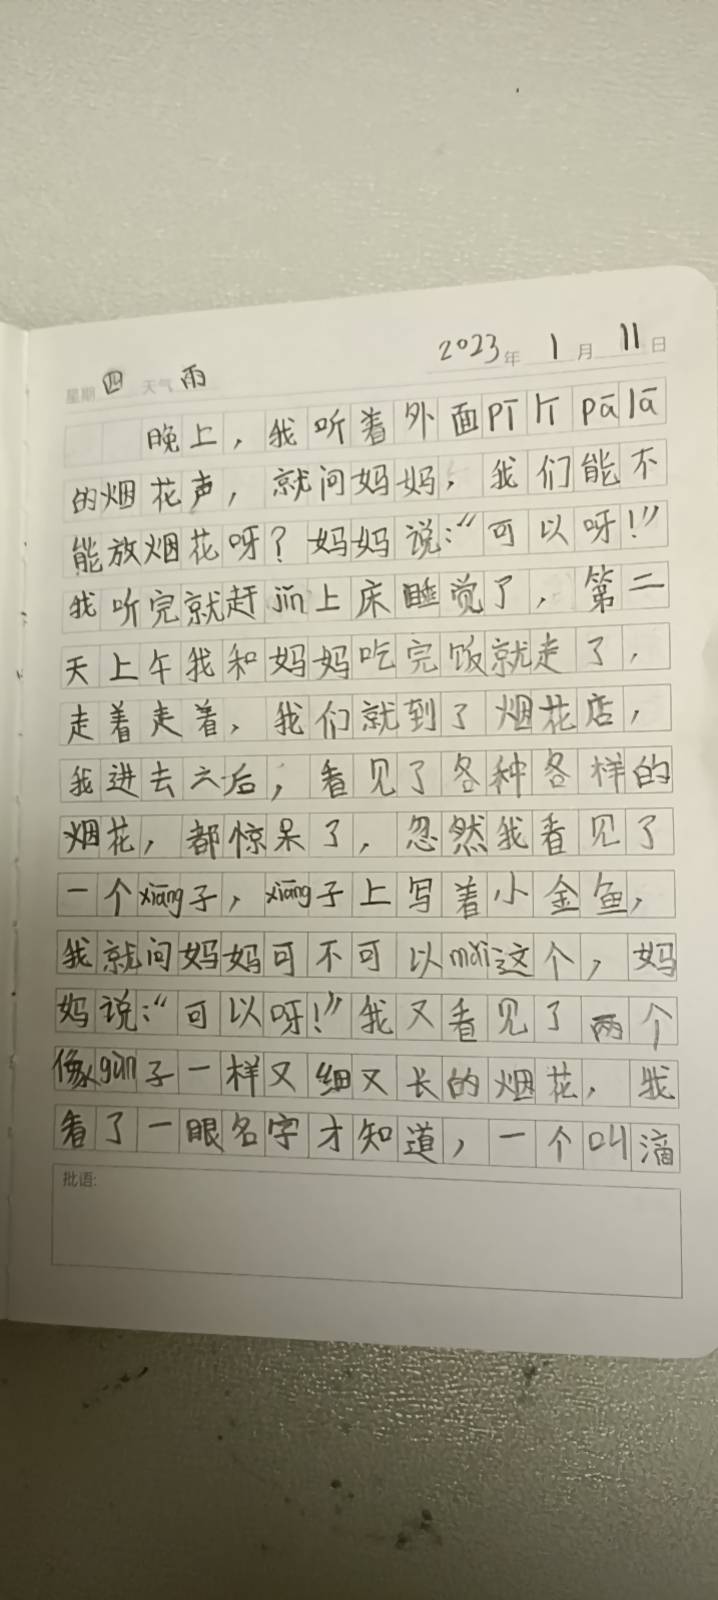 2023年 1月 11日
星期 四 天气 雨
晚上，我听着外面pī lī pā lā
的烟花声，就问妈妈，我们能不
能放烟花呀？妈妈说：“可以呀！”
我听完就赶jǐn上床睡觉了，第二
天上午我和妈妈吃完饭就走了，
走着走着，我们就到了烟花店，
我进去六后，看见了各种各样的
烟花，都惊呆了，忽然我看见了
一个xiāng子，xiāng子上写着小金鱼，
我就问妈妈可不可以mǎi这个，妈
妈说：“可以呀！”我又看见了两个
像gùn子一样又细又长的烟花，我
看了一眼名字才知道，一个叫滴
批语: